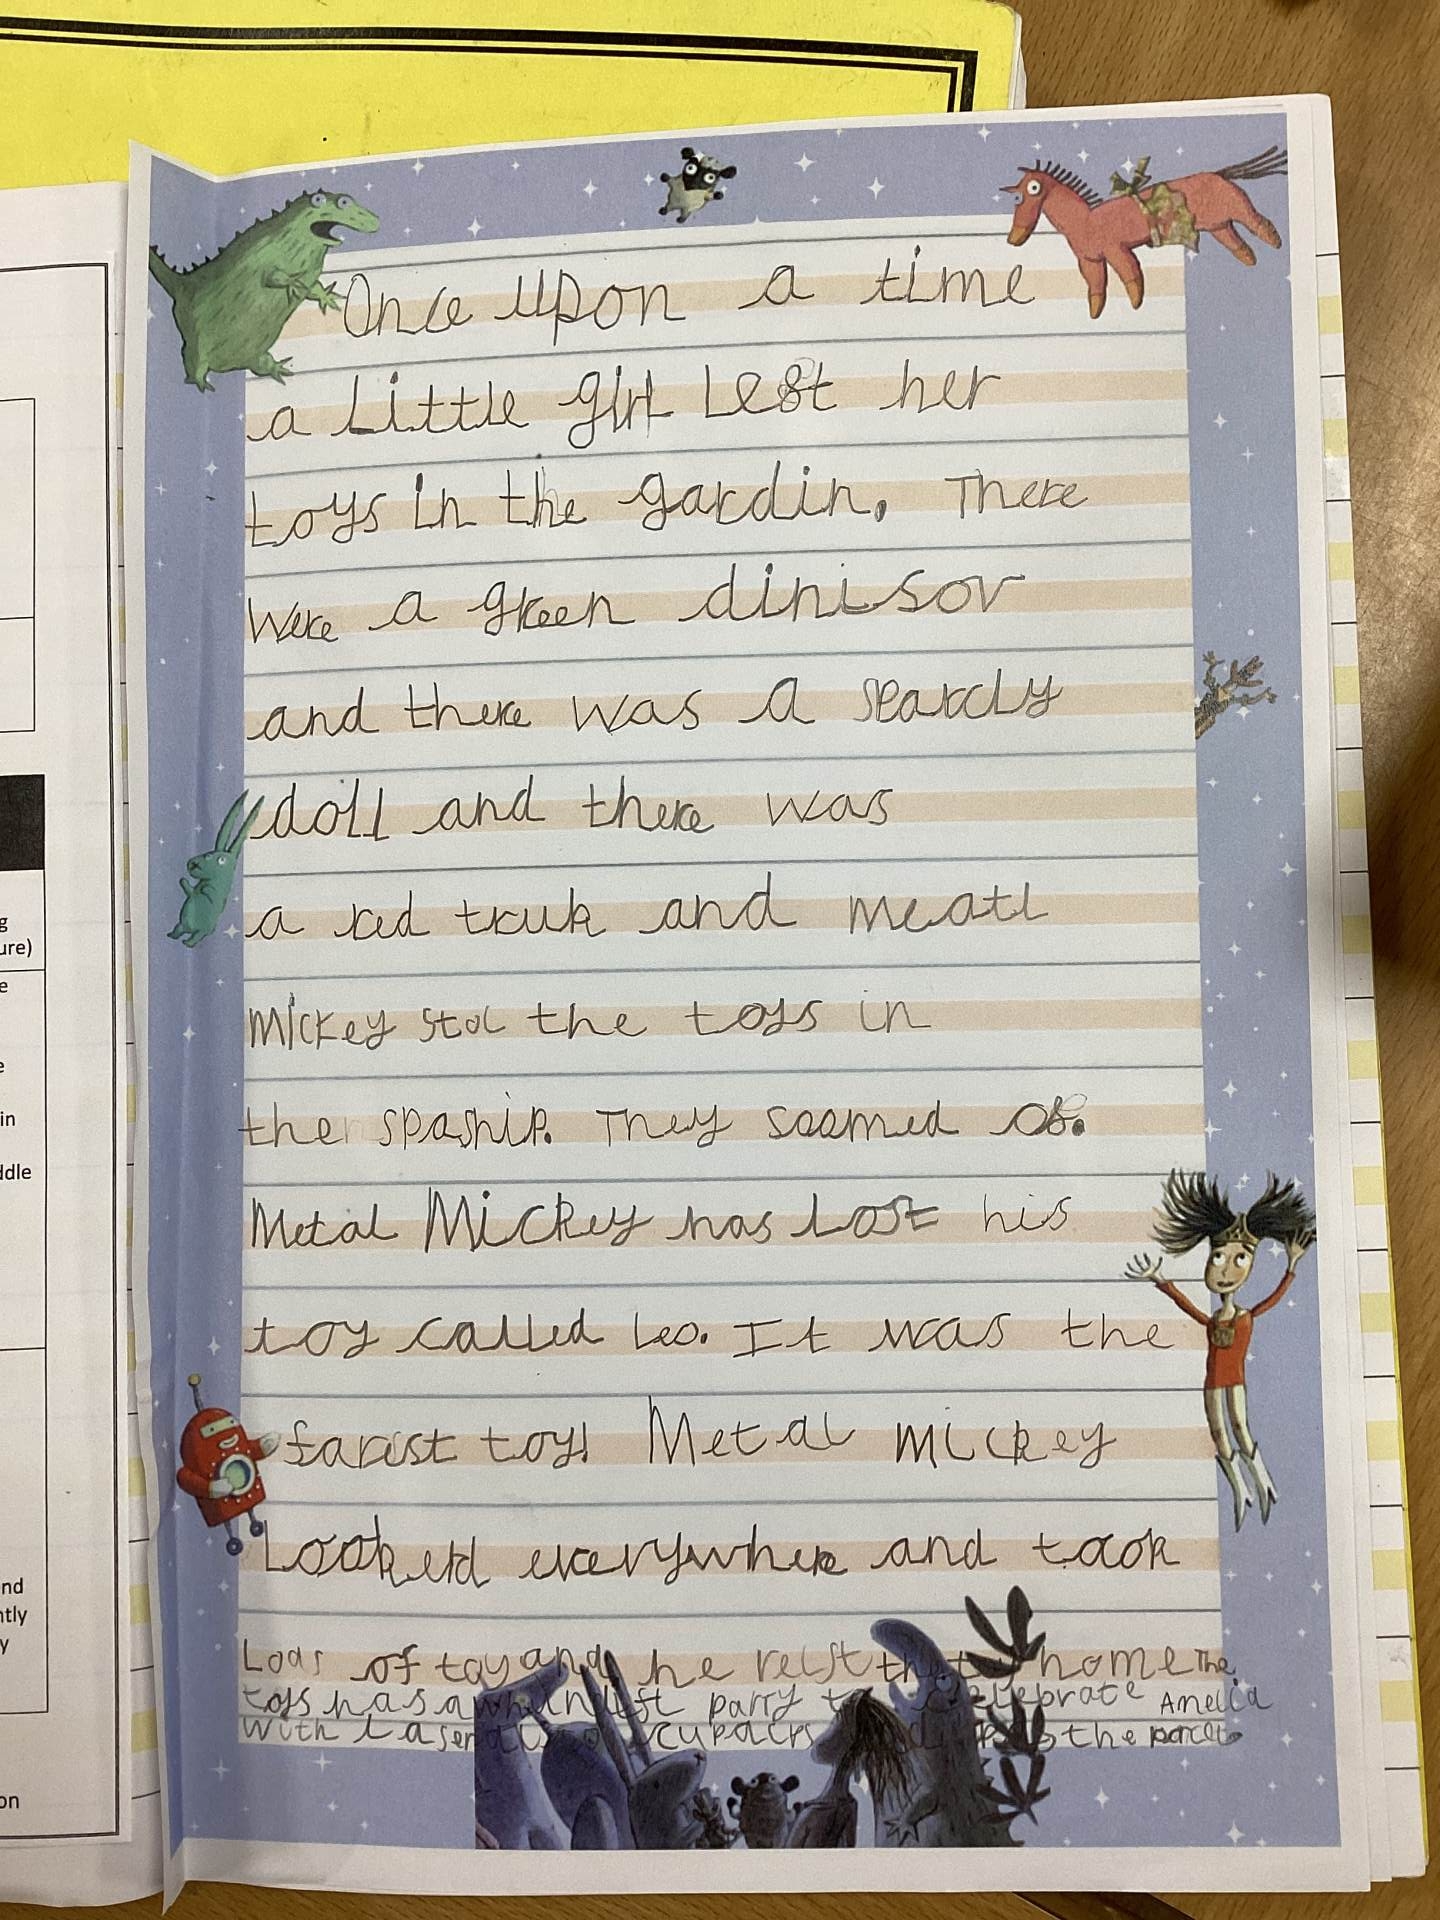 Once upon a time
a Little girl Left her
toys in the gardin. There
were a green dinisov
and there was a spearcly
doll and there was
a red truk and Meatl
Mickey stol the toys in
the spaship. They soomed of.
Metal Mickey has Lost his
toy called Leo. It was the
farist toy! Metal Mickey
Looked everywhere and took
Loas of toy and he relst home The
toys has a parry celebrate Amelia
with La cupacrs the parcts
g
ure)
e
e
in
ddle
nd
ntly
y
on